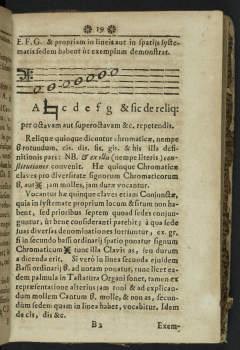 ❋ 19 ❋
E. F. G. & propriam in lineis aut in spatijs syste-
matis sedem habent ut exemplum demonstrat.
A ♮ c d e f g & sic de reliq:
per octavam aut superoctavam &c. repetendis.
Reliquæ quinque dicuntur chromaticæ, nempe
B rotundum, cis. dis. fis. gis. & his illa defi-
nitionis pars: NB. & ex illis (nempe literis) con-
stitutiones convenit. Hæ quinque Chromaticæ
claves pro diversitate signorum Chromaticorum
B, aut ※ jam molles, jam duræ vocantur.
Vocantur hæ quinque claves etiam Conjunctæ,
quia in systemate proprium locum & situm non ha-
bent, sed prioribus septem quoad sedes conjun-
guntur, ut bene considerati patebit; à qua sede
suas diversas denominationes sortiuntur, ex. gr.
si in secundo bassi ordinarij spatio ponatur signum
Chromaticum ※ tunc illa Clavis as, seu durum
a dicenda erit. Si verò in linea secunda ejusdem
Bassi ordinarij B. ad notam ponatur, tunc licet ea-
dem palmula in Tastatura Organi sonet, tamen ex
repræsentatione alterius jam toni & ad explican-
dum mollem Cantum B. molle, & non as, secun-
dùm sedem quam in linea habet, vocabitur, Idem
de cis, dis &c.
B 2 Exem-